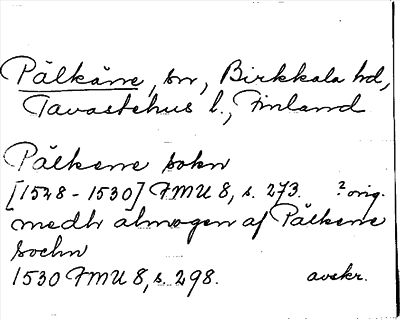 Pälkäne, sn, Birkkala hd,
Tavastehus l., Finland
Pälkene sokn
[1528-1530] FMU 8, s. 273. ? orig.
medh almogen af Pälkene
sochn
1530 FMU 8, s. 298. avskr.